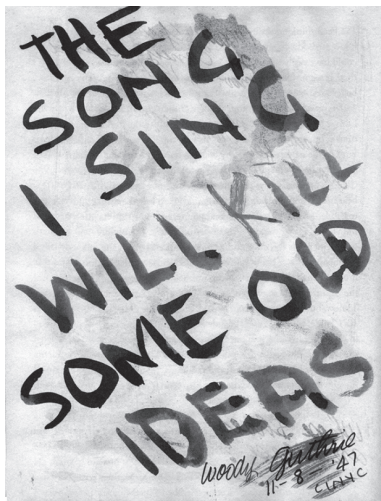 THE
SONG
I SING
WILL KILL
SOME OLD
IDEAS
Woody Guthrie
11-8-'47
CINYC